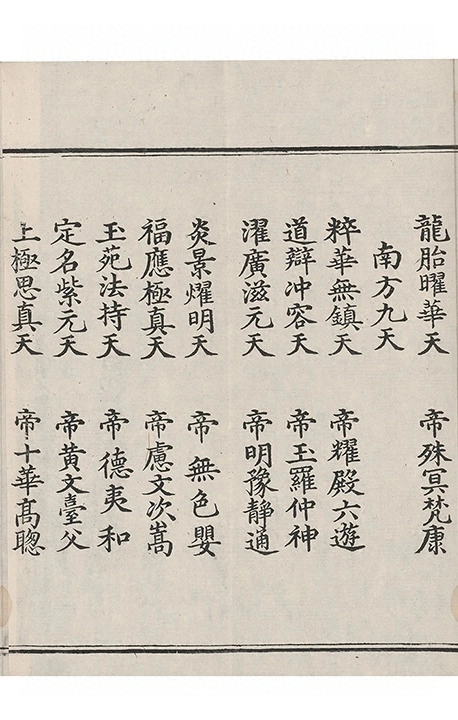 龍胎曜華天　帝殊冥梵康
南方九天
粹華無鎮天　帝耀殿六遊
道辯冲容天　帝玉羅仲神
濯廣滋元天　帝明豫靜通
炎景燿明天　帝無色嬰
福應極真天　帝慮文次嵩
玉苑法持天　帝德夷和
定名紫元天　帝黃文臺父
上極思真天　帝十華髙聰